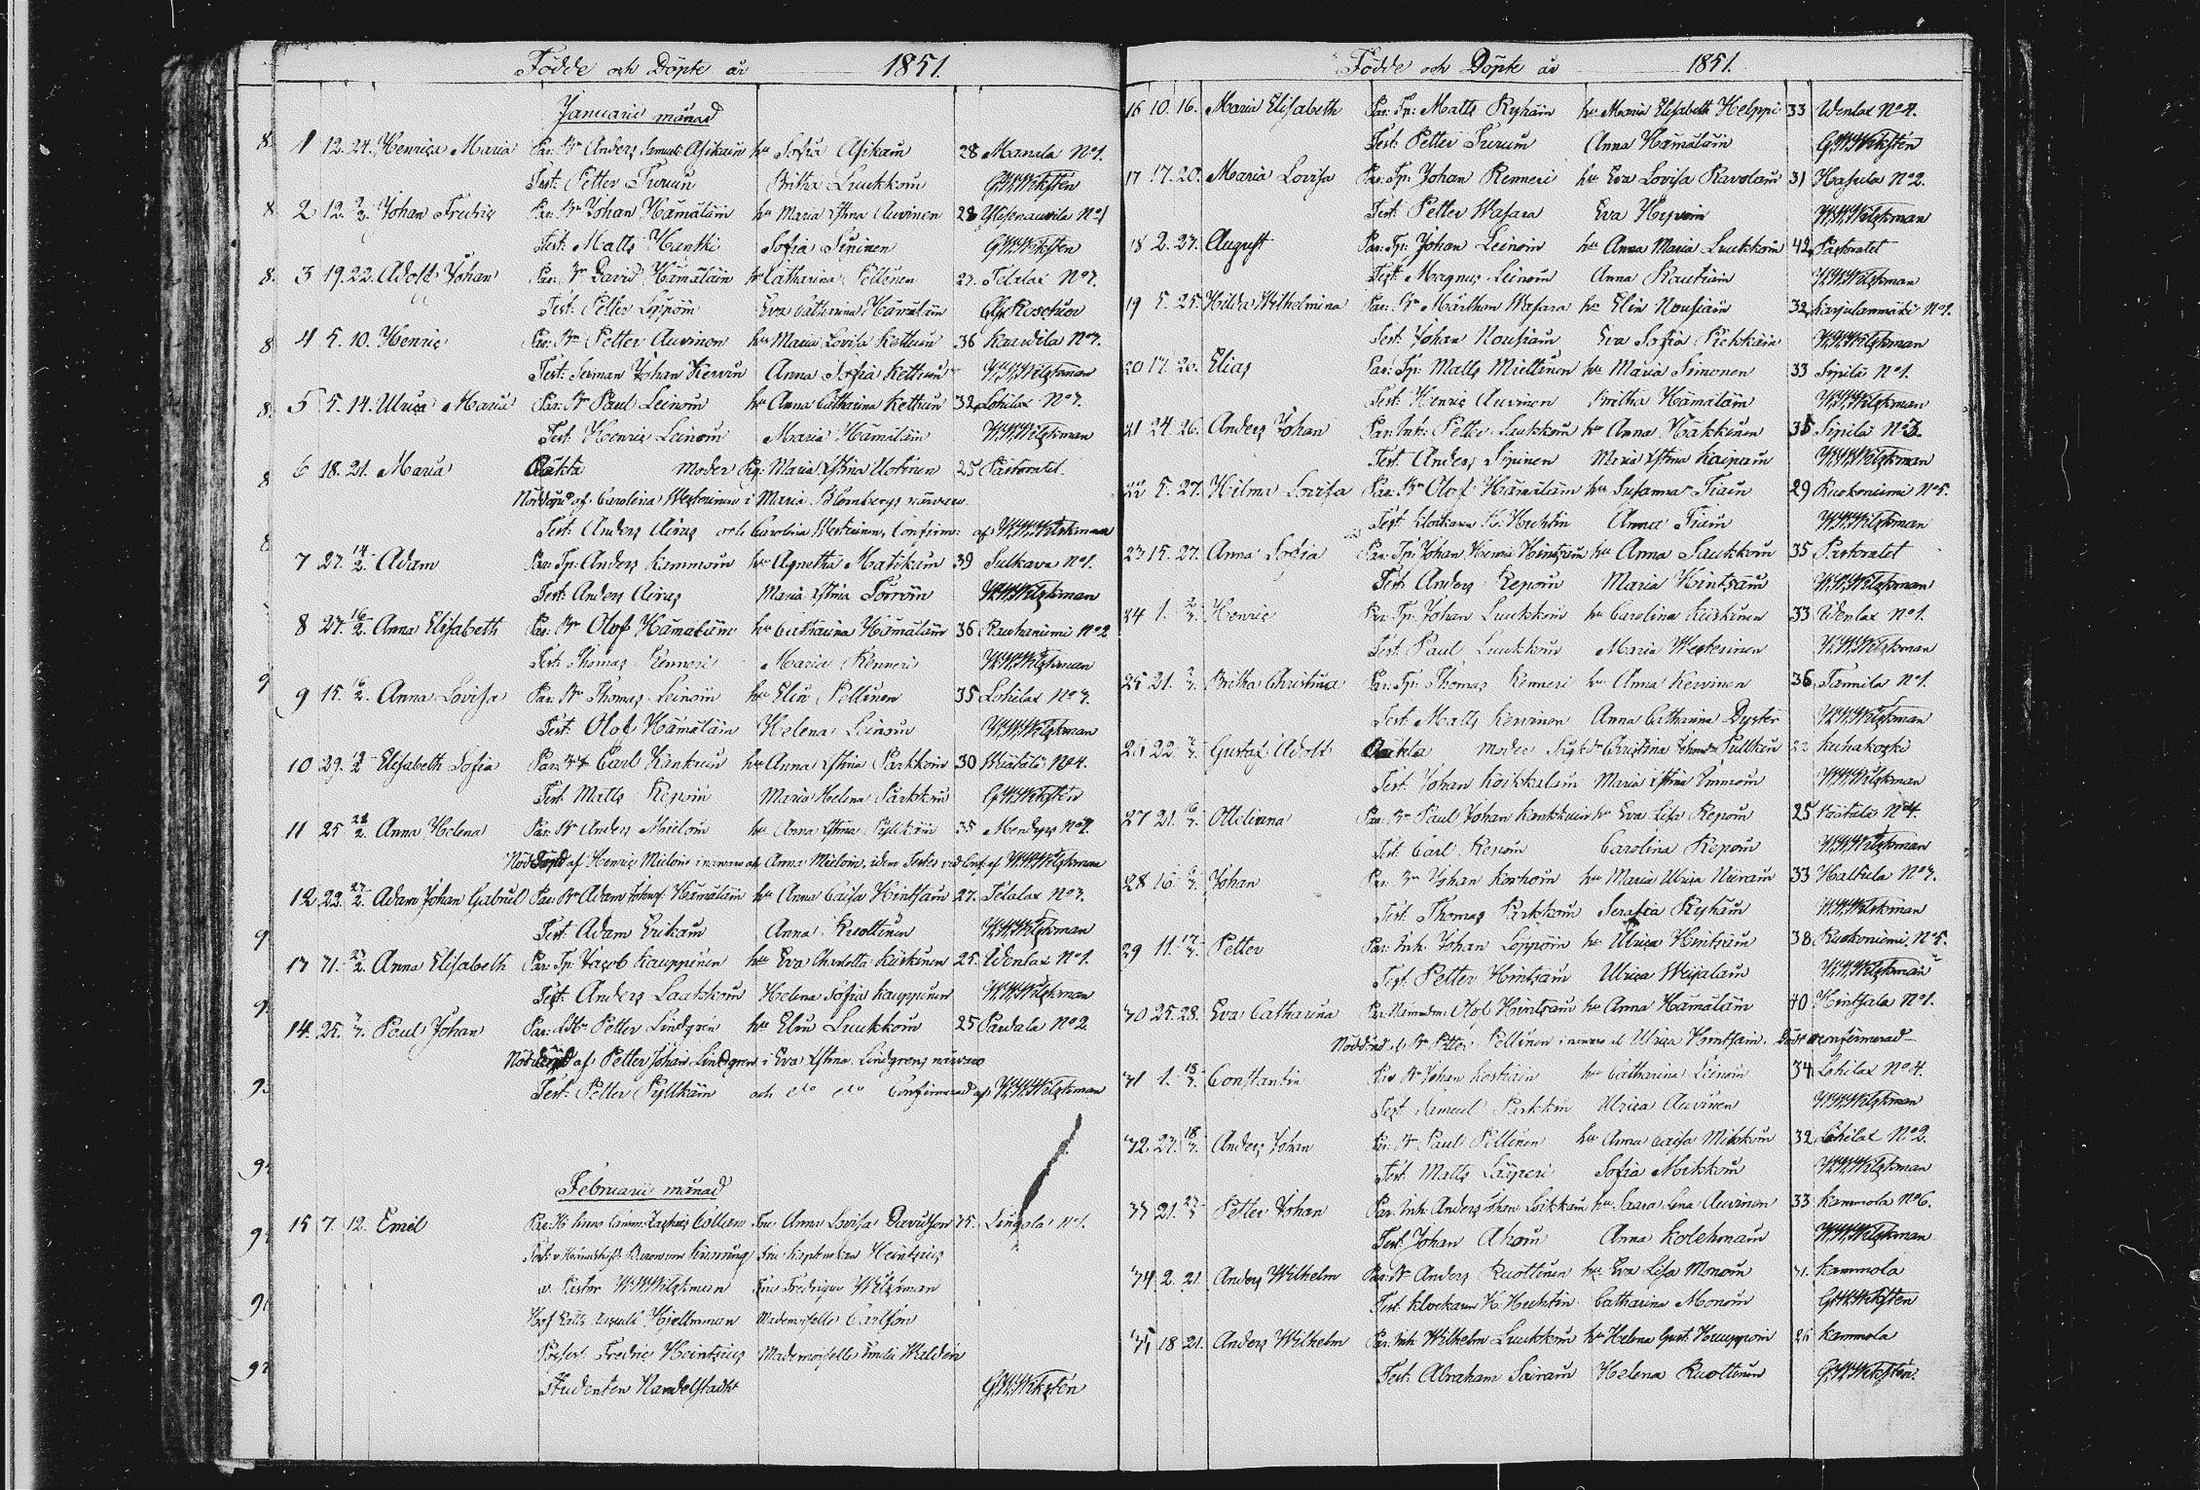 Födde och Döpte år 1851.
Januarii månad
8. 1 12. 24. Henrica Maria Par: Bn Anders Samuels: Asikain hu Sofia Asikain 28 Manala No 1.
Test: Petter Turuin Britha Luukkoin G.W. Wiksten
8. 2 12. 2/2. Johan Fredric Par: Bn Johan Hämäläin hu Maria Xstina Auvinen 28 No 1
Test: Matts Hanski Sofia Sipinen G.W. Wiksten
8. 3 19. 22. Adolf Johan Par: Bn David Hämäläin hu Catharina Pellinen 27. Telalax No 7.
Test: Petter Löppöin Eva Catharina Hämäläin Roschier
8 4 5. 10. Henric Par: Bn Petter Auvinen hu Maria Lovisa Kettuin 36 Kauvila No 7.
Test: Johan Kervin Anna Sofia Kettuin W.W. Wilskman
8. 5 5. 14. Ulrica Maria Par: Bn Paul Leinoin hu Anna Catharina Kettuin 32 Lohilax No 7.
Test: Henric Leinoin Maria Hämäläin W.W. Wilskman
8 6 18. 21. Maria Oäkta moder Pig: Maria Xstina Uotinen 25 Pastoratet.
Nöddöpt af Carolina Westerinen i Maria Blombergs närvaro
Test: Anders Airas och Carolina Westerinen, Confirm: af W.W. Wilskman
8 7 27. 14/2. Adam Par: Tp: Anders Kammoin hu Agnetha Matikain 39 Sulkava No 1.
Test: Anders Airas Maria Xstina Törröin W.W. Wilskman
8 27. 16/2. Anna Elisabeth Par: Bn Olof Hämäläin hu Catharina Hämäläin 36 Rauhaniemi No 2
Test: Thomas Renneri Maria Renneri W.W. Wilskman
9 9 15. 16/2. Anna Lovisa Par: Bn Thomas Leinoin hu Elin Pellinen 35 Lohilax No 7.
Test: Olof Hämäläin Helena Leinoin W.W. Wilskman
10 29. Elisabeth Sofia Par: Carl Kankuin hu Anna Xstina Parkkoin 30 No 4.
Test: Matts Repoin Maria Helena Parkkoin G.W. Wiksten
11 25 Anna Helena Par: Bn Anders Mieloin hu Anna Xstina 35
Nöddöpt af Henric Mieloin i närvaro af Anna Mieloin, af W.W. Wilskman
12 22. 27/2. Adam Johan Gabriel Par: Bn Adam Johans: Hämäläin hu Anna Caisa Hintsain 27. Telalax No 3.
9 Test: Adam Erikain Anna Ruottinen W.W. Wilskman
13 31. Anna Elisabeth Par: Tp: Jacob Kauppinen hu Eva Charlotta Kiiskinen 25. Wenlax No 1.
9. Test: Anders Laukkoin Helena Sofia Kauppinen W.W. Wilskman
14. 25. Paul Johan Par: Petter Lindgren hu Elin Luukkoin 25 Pardala No 2.
Nöddöpt af Petter Johan Lindgren i Eva Xstina Lindgrens närvaro
9. Test: Petter Pyllkäin och dto dto Confirmerad af W.W. Wilskman
9.
Februarii månad
9. 15 7. 12. Emil Par: Collian Fru Anna Lovisa Davidson 35. No 1.
Heintzius
v. Pastor W.W. Wilskman Fru Fredrique Wilskman
9. Hjellmman Mademoiselle Carlson
Fredric Heintzius Mademoiselle Emilie Walden
9. Studenten Handelstadht G.W. Wiksten
Födde och Döpte år 1851.
16 10. 16. Maria Elisabeth Par: Tp: Matts Ryhäin hu Maria Elisabeth Helppi 33 Wenlax No 4.
Test: Petter Turuin Anna Hämäläin G.W. Wiksten
17 17. 20. Maria Lovisa Par: Tp: Johan Renneri hu Eva Lovisa Ravolain 31 Hasula No 2.
Test: Petter Wasara Eva W.W. Wilskman
18 2. 23. August Par: Tp: Johan Leinoin hu Anna Maria Luukkoin 42 Pastoratet
Test: Magnus Leinoin Anna Rautiain W.W. Wilskman
19 5. 25. Hilda Wilhelmina Par: Bn Marthan Wasara hu Elin Nousiain 32 Karjulanmäki No 1.
Test: Johan Nousiain Eva Sofia Pickkäin W.W. Wilskman
20 17. 26. Elias Par: Tp: Matts Miettinen hu Maria Simonen 33 Sipilä No 1.
Test: Henric Auvinen Britha Hämäläin W.W. Wilskman
21 24. 26. Anders Johan Par: Inh: Petter Luukkoin hu Anna Häkkinen 35 Sipilä No 3.
Test: Anders Sipinen Maria Xstina Kaipain W.W. Wilskman
22 5. 27. Hilma Lovisa Par: Bn Olof Hämäläin hu Susanna Tiain 29 Ruokoniemi No 5.
Test: Klockaren H. Huhtin Anna Tiain W.W. Wilskman
23 15. 27. Anna Sofia Par: Tp: Johan Henric Hintsain hu Anna Laukkoin 35 Pastoratet
Test: Anders Repoin Maria Hintsain W.W. Wilskman
24 1. 2/3. Henric Par: Tp: Johan Luukkoin hu Carolina Kiiskinen 33 Wenlax No 1.
Test: Paul Luukkoin Maria Westerinen W.W. Wilskman
25 21. 2/3. Britha Christina Par: Tp: Thomas Renneri hu Anna Kervinen 36 Tannila No 1.
Test: Matts Kervinen Anna Catharina Dyster W.W. Wilskman
26 22. Gustaf Adolf Oäkta moder Christina Pulkkin Kuhakoski
Test: Johan Koikkalain Maria Xstina Immoin W.W. Wilskman
27 21. 6/3. Otteliana Par: Bn Paul Johan Kankkuin hu Eva Lisa Repoin 25 No 4.
Test: Carl Repoin Carolina Repoin W.W. Wilskman
28 16. 6/3. Johan Par: Bn Johan Korhoin hu Maria Ulrica Niirain 33 Halkula No 7.
Test: Thomas Parkkoin Serafia Ryhäin W.W. Wilskman
29 11. 17/3. Petter Par: Inh: Johan Löppöin hu Ulrica Hintsain 38 Ruokoniemi No 5.
Test: Petter Hintsain Ulrica Weijalain W.W. Wilskman
30 25. 28. Eva Catharina Par: Nämndem: Olof Hintsain hu Anna Hämäläin 40 Hintsala No 1.
Nöddöpt af Bn Petter Pellinen i närvaro af Ulrica Hintsain,
31 1. 13/3. Constantin Par: Bn Johan Koskiain hu Catharina Leinoin 34 Lohilax No 4.
Test: Samuel Parkkin Ulrica Auvinen W.W. Wilskman
32. 27. 18/3. Anders Johan Par: Bn Paul Pellinen hu Anna Caisa Mikkoin 32 Lohilax No 2.
Test: Matts Lasperi Sofia Mikkoin W.W. Wilskman
33 21. 23/3 Petter Johan Par: Inh: Anders Johan Loikkain hu Saara Lena Auvinen 33 Kammola No 6.
Test: Johan Ahoin Anna Kolehmain W.W. Wilskman
34 2. 21. Anders Wilhelm Par: Bn Anders Ruottinen hu Eva Lisa Monoin 31. Kammola
Test: Klockaren H. Huhtin Catharina Monoin G.W. Wiksten
35 18 21. Anders Wilhelm Par: Inh: Wilhelm Luukkoin hu Helena Gust: Kauppoin 26 Kammola
Test: Abraham Sairain Helena Ruottinen G.W. Wiksten.